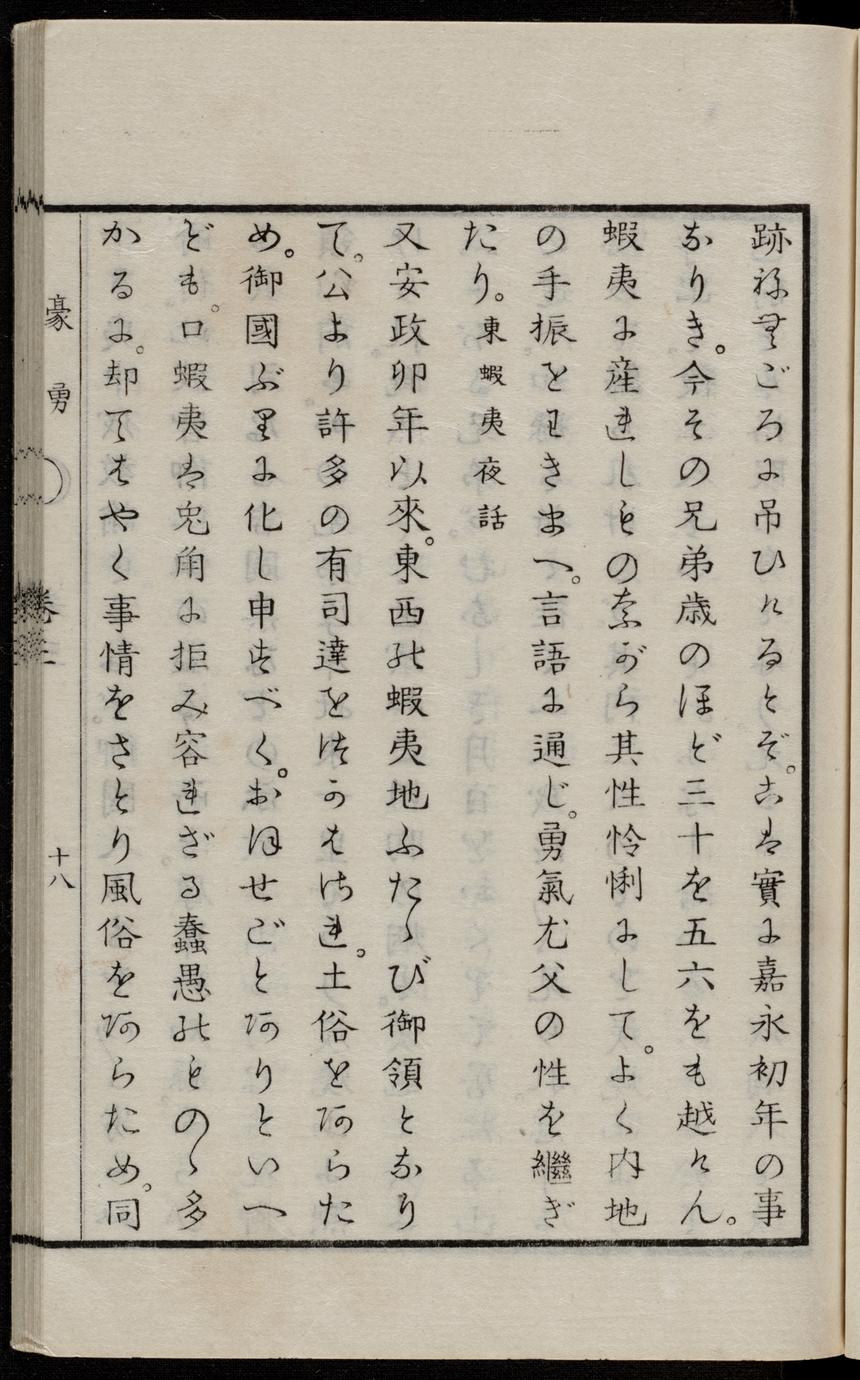 跡ねむごろに吊ひけるとぞ。こは實に嘉永初年の事
なりき。今その兄弟歳のほど三十を五六をも越けん。
蝦夷に産れしものながら其性怜悧にして。よく内地
の手振をわきまへ。言語に通じ。勇氣尤父の性を繼ぎ
たり。東蝦夷夜話
又安政卯年以來。東西の蝦夷地ふたゝび御領となり
て。公より許多の有司達をつかはされ。土俗をあらた
め。御國ぶりに化し申すべく。おほせごとありといへ
ども。口蝦夷は兎角に拒み容れざる蠢愚のものゝ多
かるに。却てはやく事情をさとり風俗をあらため。同
豪勇
卷三
十八